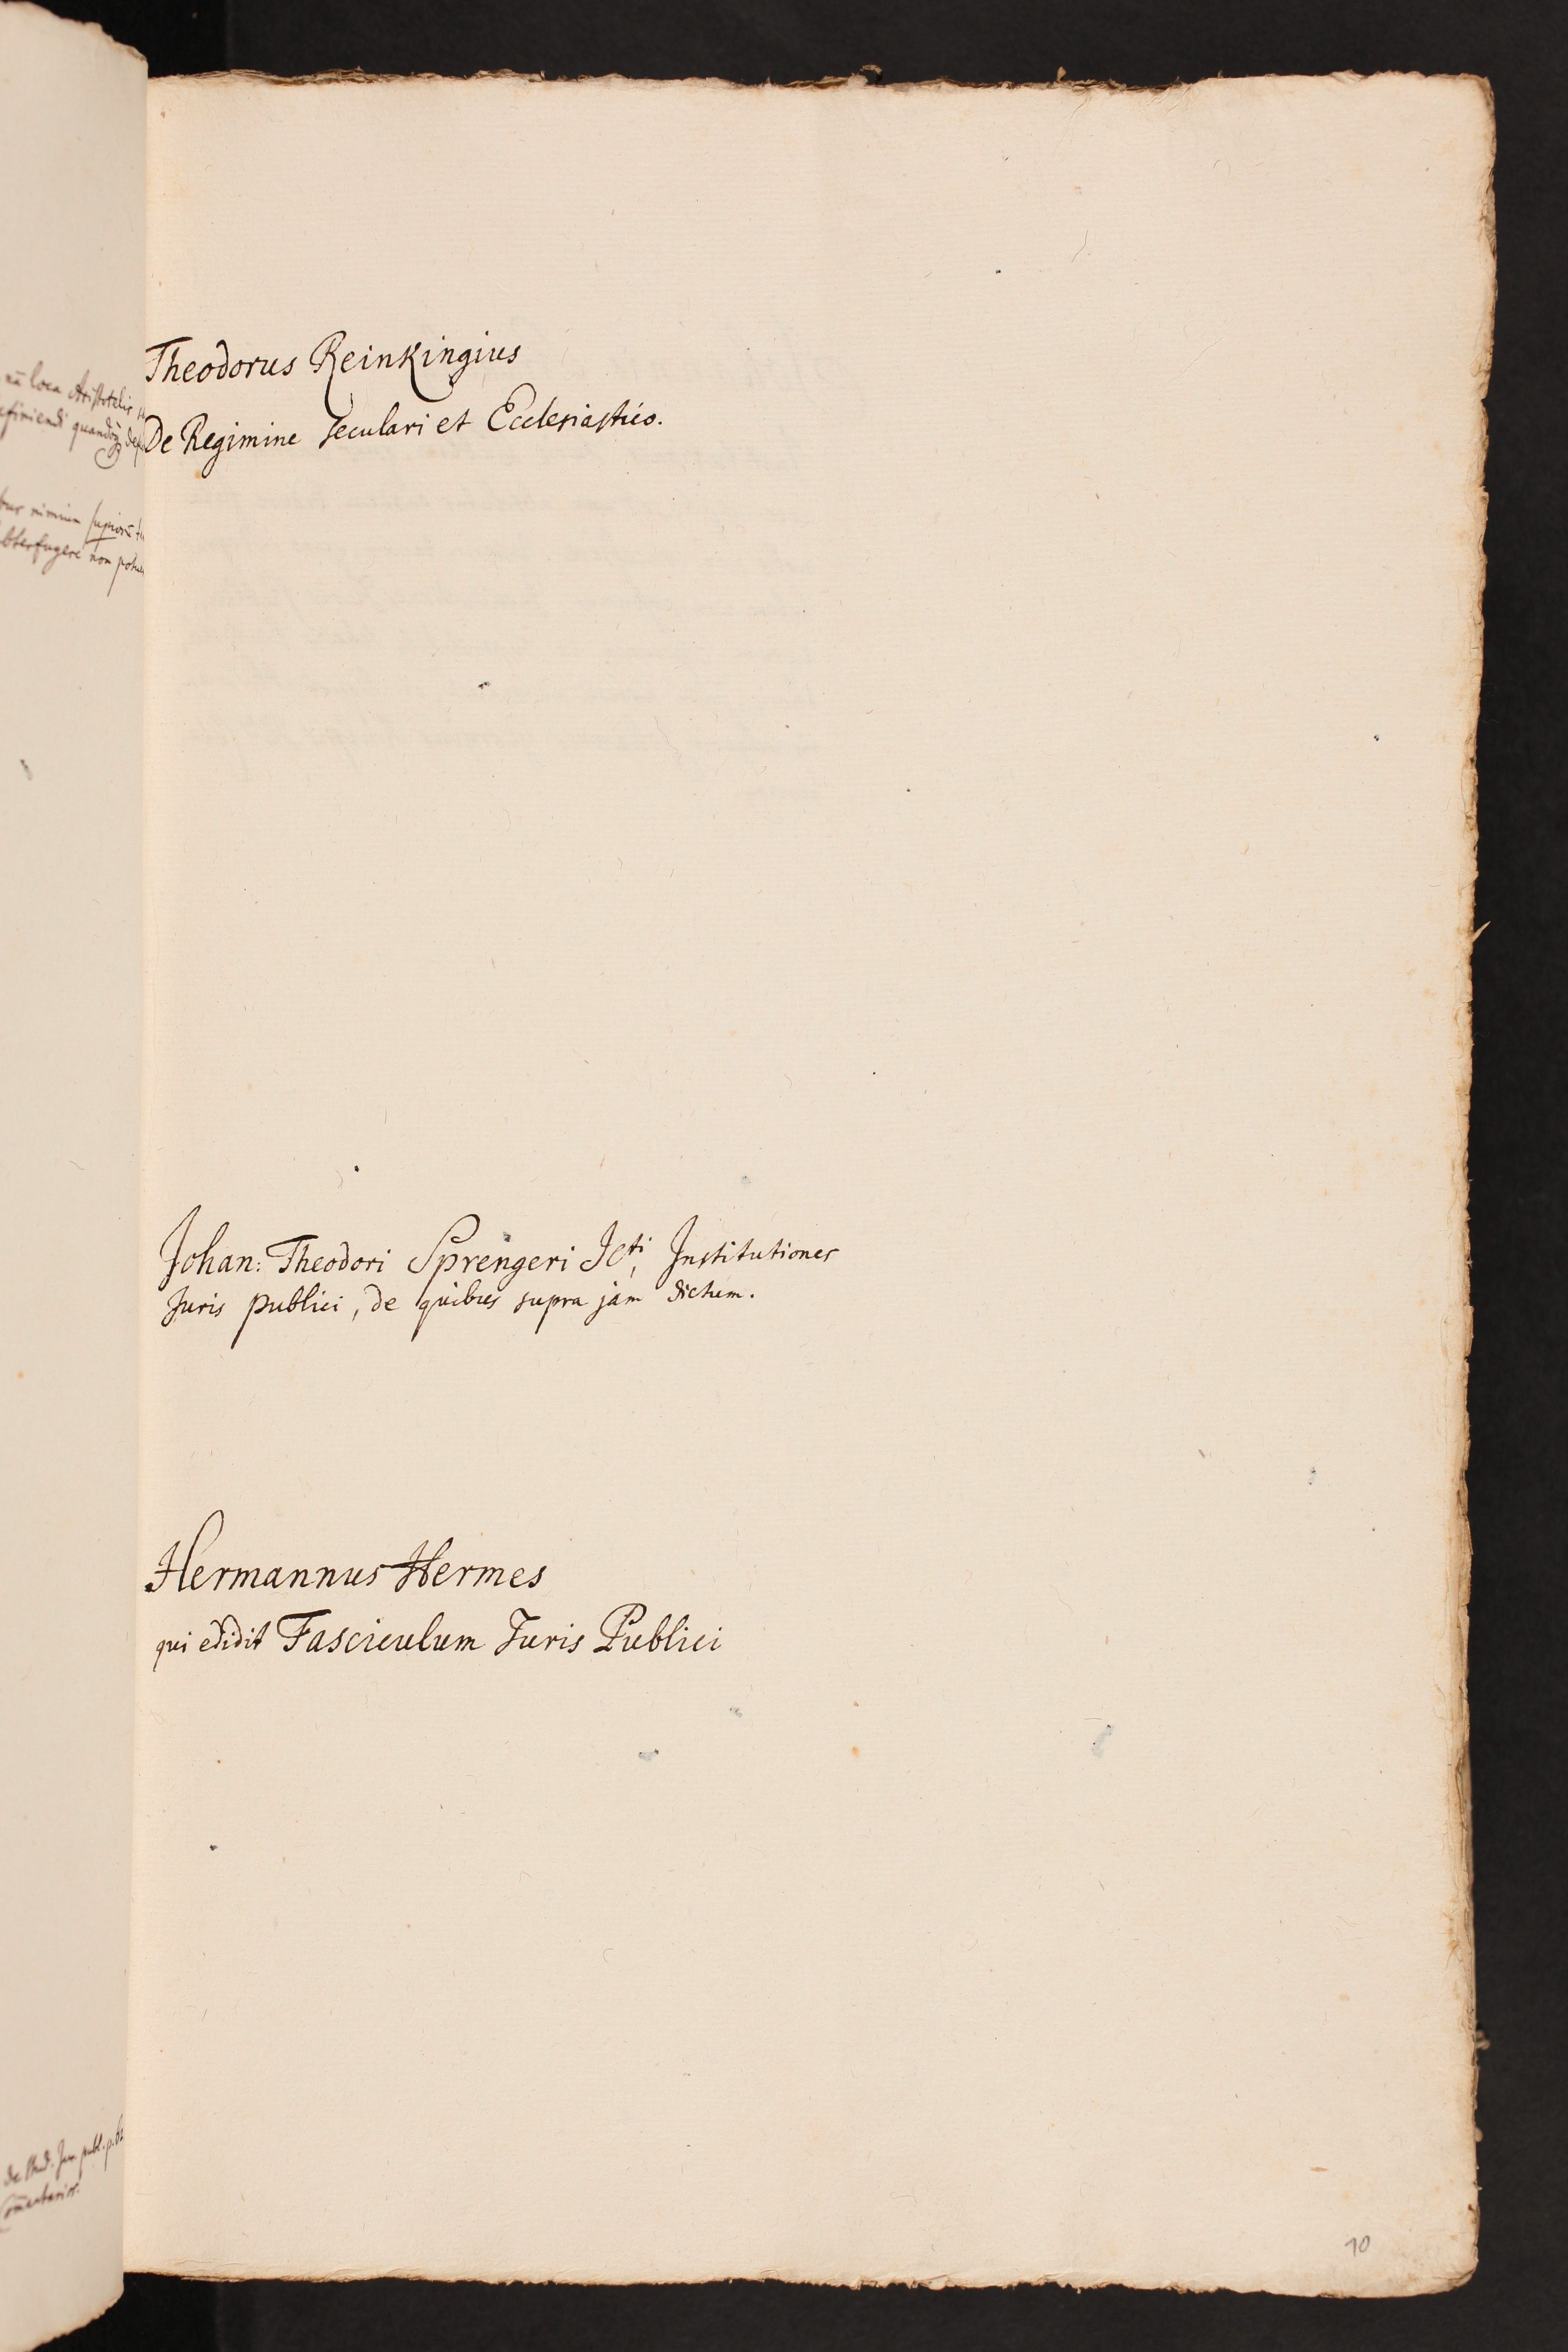 nū loca Aristotelis
efiniendi quandoq de
tur nimium
bterfugere non potu
Theodorus Reinkingius
De Regimine Seculari et Ecclesiastico.
Johan: Theodori Sprengeri JCti, Institutiones
Juris publici, de quibus supra jam dictum.
Hermannus Hermes
qui edidit Fasciculum Juris Publici
de Stud. Jur. publ. p. 62
Com̄entarior.
10